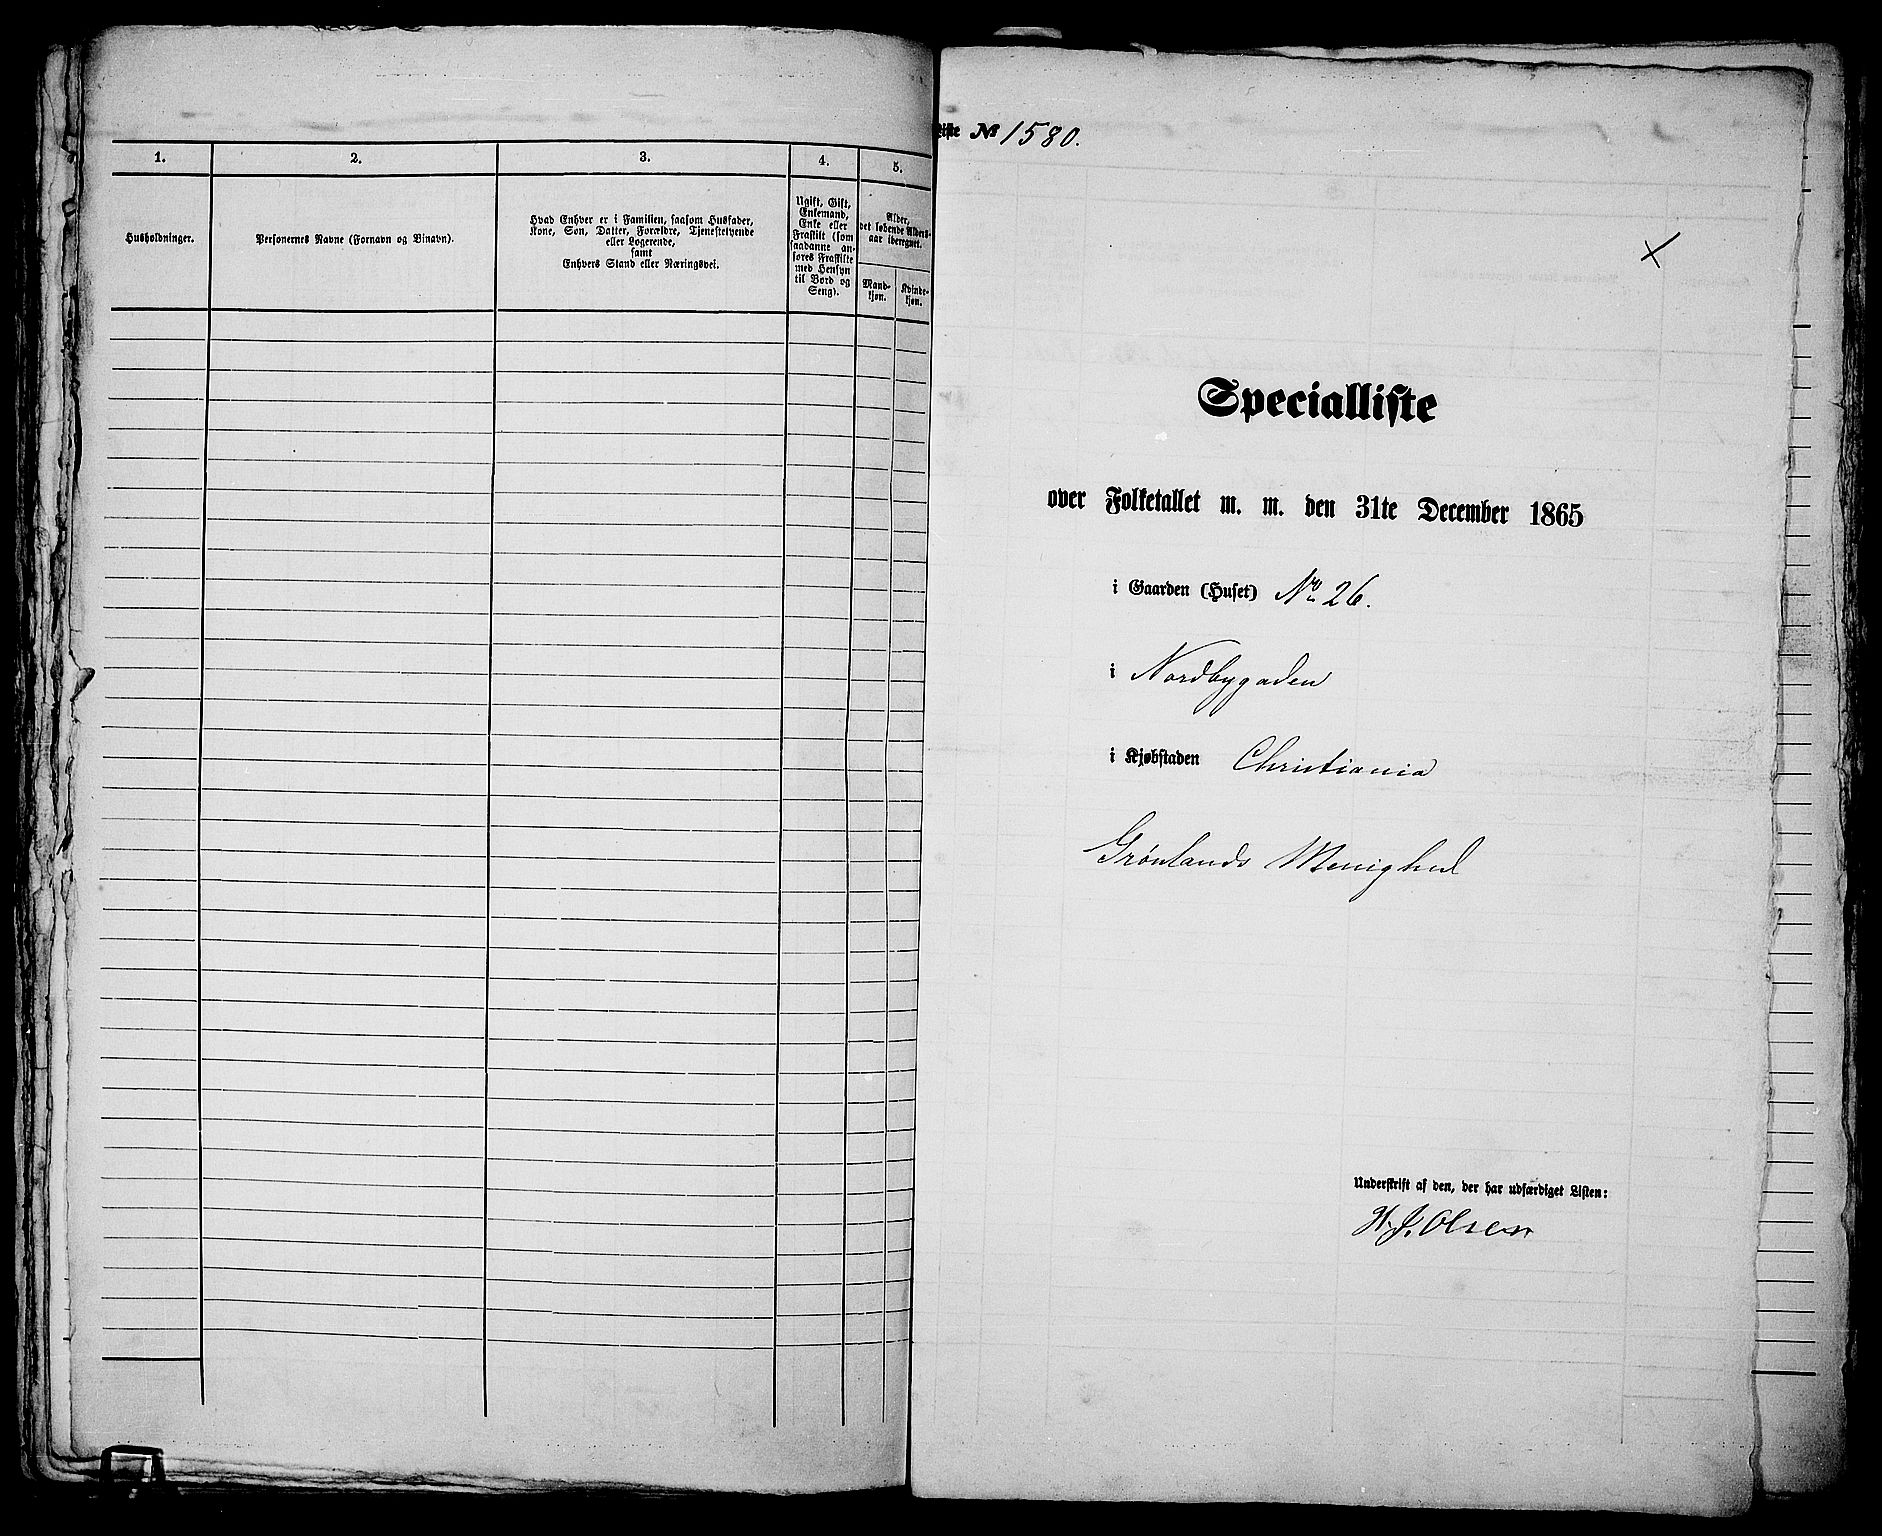 1.
2.
3.
4.
5.
Husholdninger.
Personernes Navne (Fornavn og Binavn).
Hvad Enhver er i Familien, saasom Husfader,
Kone, Søn, Datter, Forældre, Tjenestetyende
eller Logerende,
samt
Enhvers Stand eller Næringsvei.
Ugift, Gift,
Enkemand,
Enke eller
Fraskilt (som
saadanne an-
føres Fraskilte
med Hensyn
til Bord og
Seng).
Alder,
det løbende Alders-
aar iberegnet.
Mand-
kjøn.
Kvinde-
kjøn.
Liste № 1580.
Specialliste
over Folketallet m. m. den 31te December 1865
i Gaarden (Huset) No 26.
i Nordbygaden
i Kjøbstaden Christiania
Grønlands Menighed
Underskrift af den, der har udfærdiget Listen:
H. J. Olsen